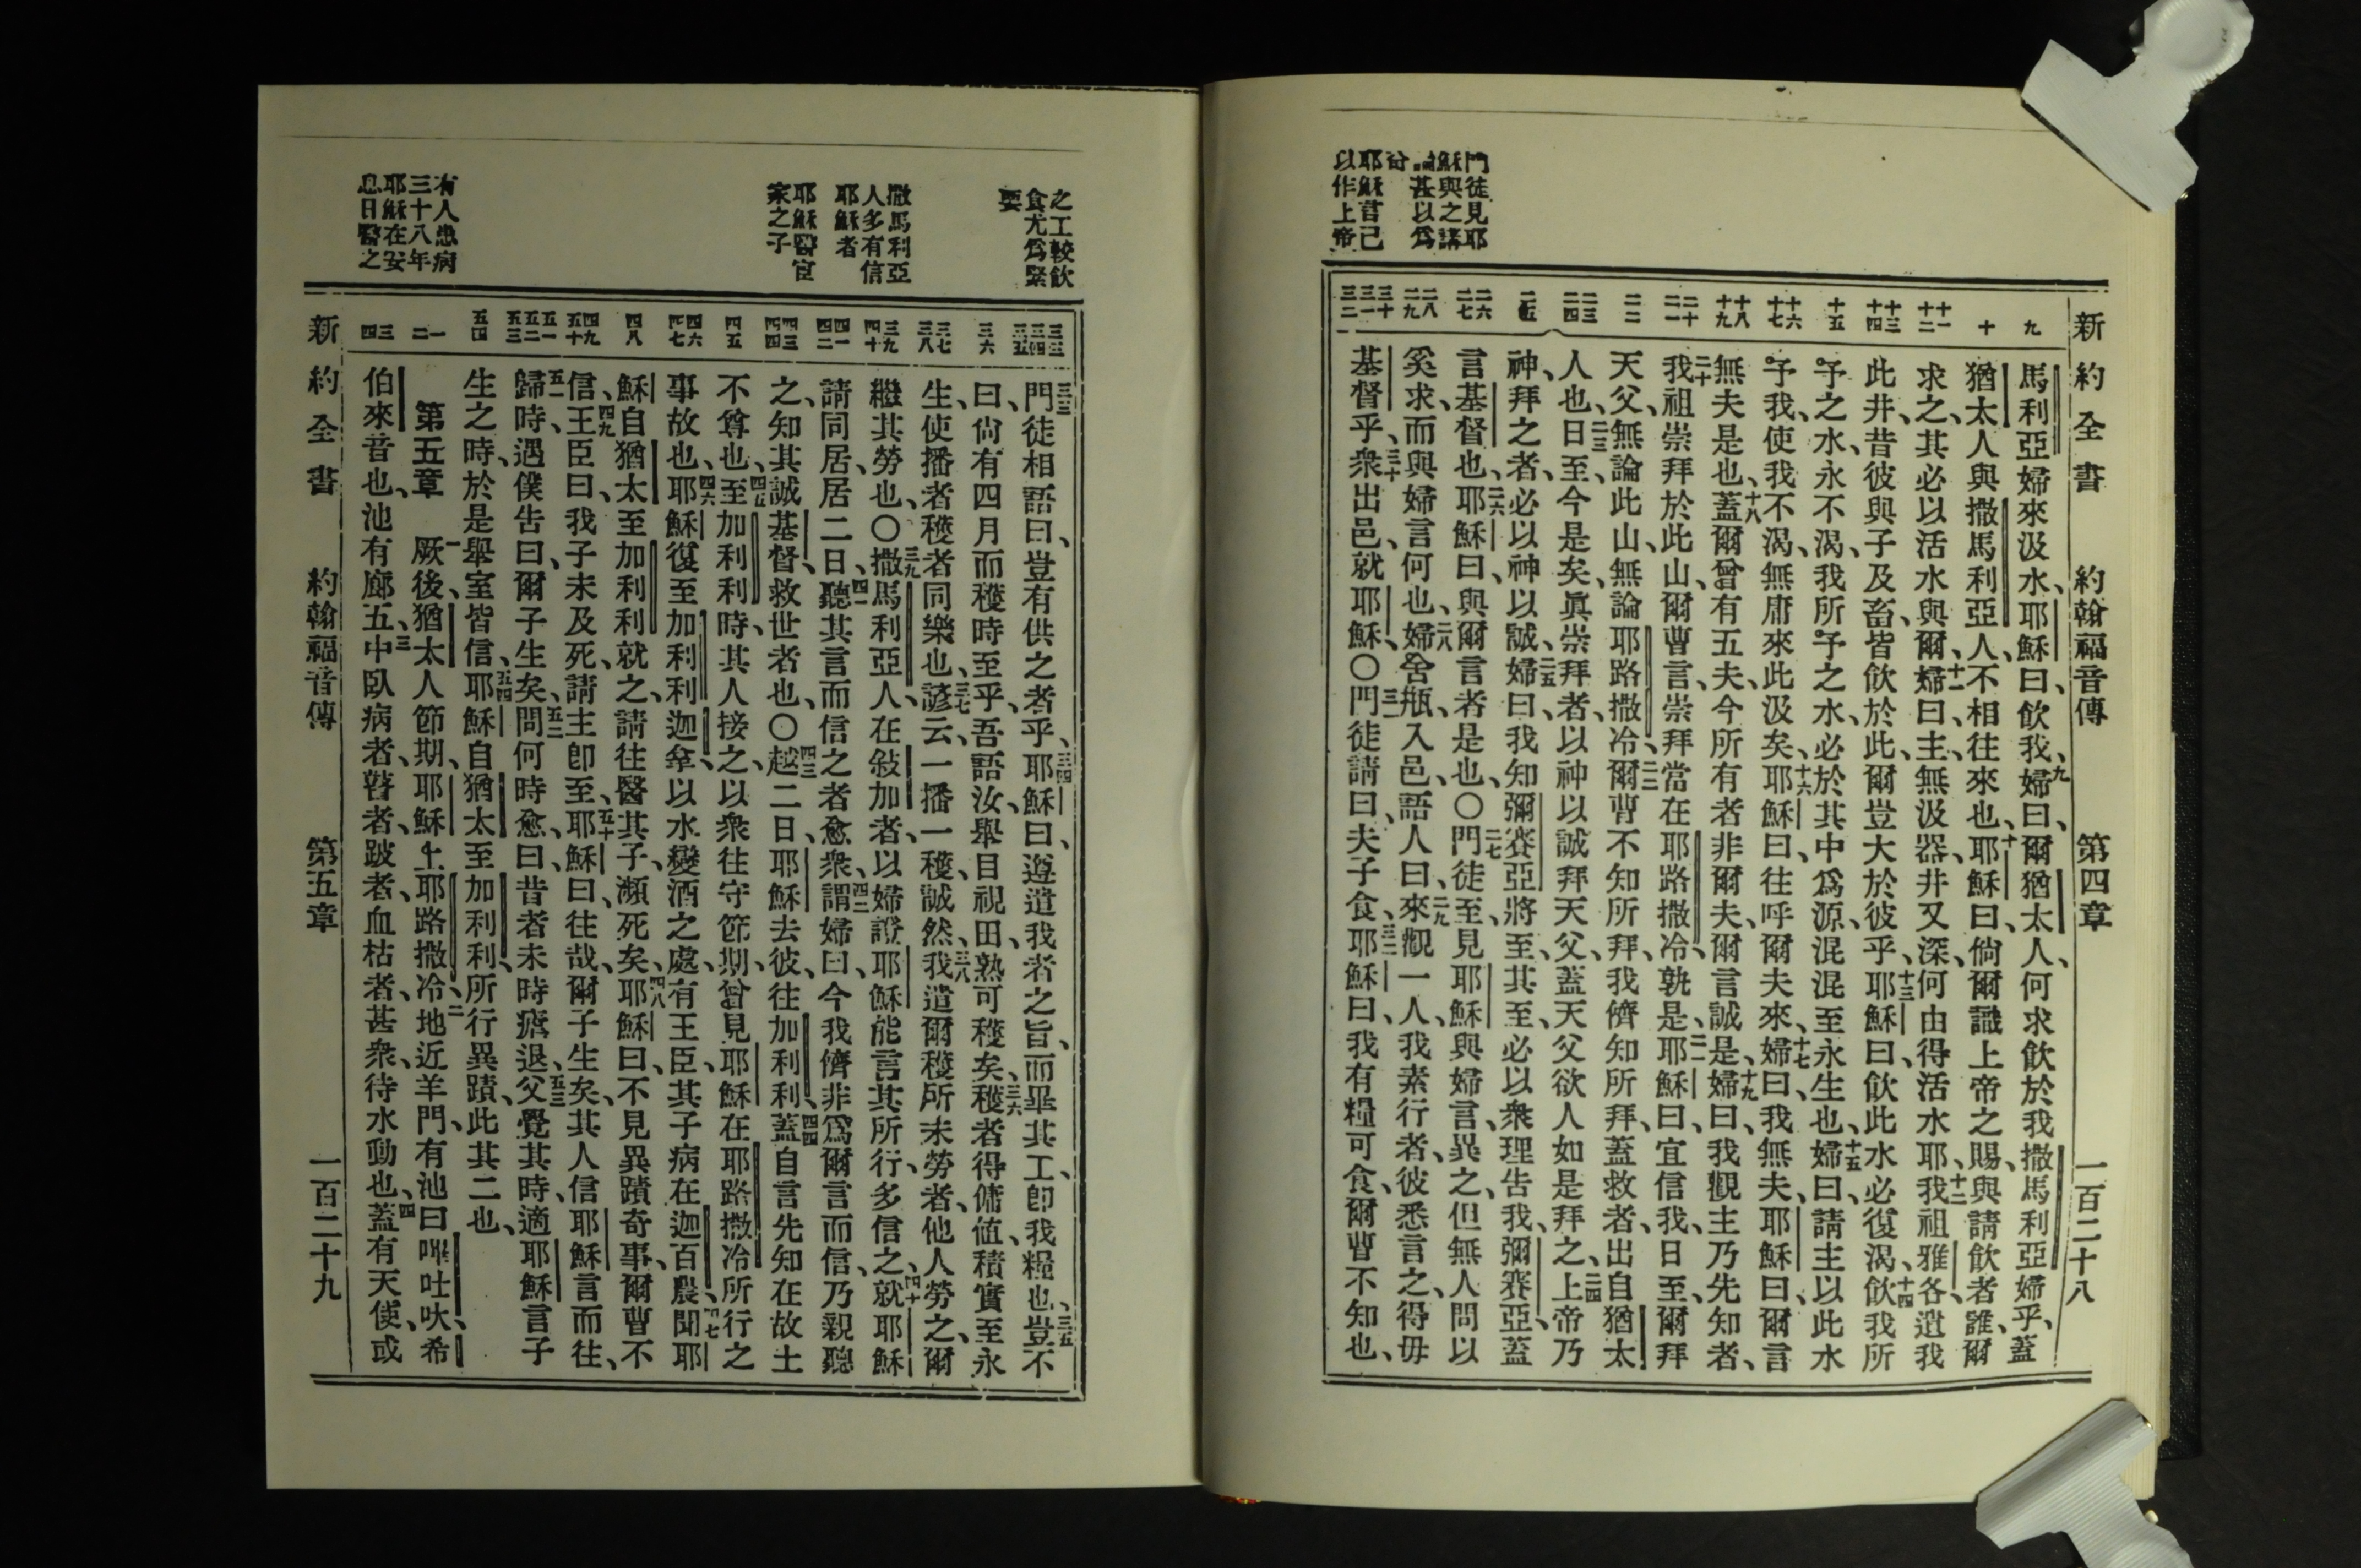 新約全書 約翰福音傳 第四章 一百二十八
門徒見耶
穌與之講
甚以爲
耶穌言己
以作上帝
九
十
十一
十二
十三
十四
十五
十六
十七
十八
十九
二十
二一
二二
二三
二四
二五
二六
二七
二八
二九
三十
三一
三二
馬利亞婦來汲水、耶穌曰、飲我、九婦曰、爾猶太人、何求飲於我撒馬利亞婦乎、蓋
猶太人與撒馬利亞人、不相往來也、十耶穌曰、倘爾識上帝之賜、與請飲者誰、爾
求之、其必以活水與爾、十一婦曰、主、無汲器、井又深、何由得活水耶、十二我祖雅各、遺我
此井、昔彼與子及畜、皆飲於此、爾豈大於彼乎、十三耶穌曰、飲此水必復渴、十四飲我所
予之水、永不渴、我所予之水、必於其中爲源、混混至永生也、十五婦曰、請主以此水
予我、使我不渴、無庸來此汲矣、十六耶穌曰、往呼爾夫來、十七婦曰、我無夫、耶穌曰、爾言
無夫是也、十八蓋爾曾有五夫、今所有者、非爾夫、爾言誠是、十九婦曰、我觀主乃先知者、
二十我祖崇拜於此山、爾曹言、崇拜當在耶路撒冷、孰是、二一耶穌曰、宜信我、日至、爾拜
天父、無論此山、無論耶路撒冷、二二爾曹不知所拜、我儕知所拜、蓋救者、出自猶太
人也、二三日至、今是矣、眞崇拜者、以神以誠拜天父、蓋天父欲人如是拜之、二四上帝乃
神、拜之者、必以神以誠、二五婦曰、我知彌賽亞將至、其至、必以衆理告我、彌賽亞、蓋
言基督也、二六耶穌曰、與爾言者是也、〇二七門徒至、見耶穌與婦言、異之、但無人問以
奚求、而與婦言何也、二八婦舍瓶、入邑、語人曰、二九來觀一人、我素行者、彼悉言之、得毋
基督乎、三十衆出邑、就耶穌、〇三一門徒請曰、夫子食、三二耶穌曰、我有糧可食、爾曹不知也、
之工較飲
食尤爲緊
要
撒馬利亞
人多有信
耶穌者
耶穌醫官
家之子
有人患病
三十八年
耶穌在安
息日醫之
三三
三四
三五
三六
三七
三八
三九
四十
四一
四二
四三
四四
四五
四六
四七
四八
四九
五十
五一
五二
五三
五四
一
二
三
四
三三門徒相語曰、豈有供之者乎、三四耶穌曰、遵遣我者之旨、而畢其工、卽我糧也、三五豈不
曰、尙有四月而穫時至乎、吾語汝、舉目視田、熟可穫矣、三六穫者得傭値、積實至永
生、使播者穫者同樂也、三七諺云、一播一穫、誠然、三八我遣爾穫所未勞者、他人勞之、爾
繼其勞也、〇三九撒馬利亞人、在敍加者、以婦證耶穌能言其所行、多信之、四十就耶穌
請同居、居二日、四一聽其言而信之者愈衆、四二謂婦曰、今我儕非爲爾言而信、乃親聽
之、知其誠基督、救世者也、〇四三越二日、耶穌去彼、往加利利、四四蓋自言先知在故土
不尊也、四五至加利利時、其人接之、以衆往守節期、曾見耶穌在耶路撒冷所行之
事故也、四六耶穌復至加利利迦拿、以水變酒之處、有王臣、其子病在迦百農、四七聞耶
穌自猶太至加利利、就之、請往醫其子、瀕死矣、四八耶穌曰、不見異蹟奇事、爾曹不
信、四九王臣曰、我子未及死、請主卽至、五十耶穌曰、往哉、爾子生矣、其人信耶穌言而往、
五一歸時、遇僕告曰、爾子生矣、五二問何時愈、曰、昔者未時瘧退、五三父覺其時、適耶穌言子
生之時、於是舉室皆信、五四耶穌自猶太至加利利、所行異蹟、此其二也、
第五章 一厥後、猶太人節期、耶穌上耶路撒冷、二地近羊門、有池曰嗶吐㕭、希
伯來音也、池有廊五、三中臥病者、瞽者、跛者、血枯者、甚衆、待水動也、四蓋有天使、或
新約全書 約翰福音傳 第五章 一百二十九